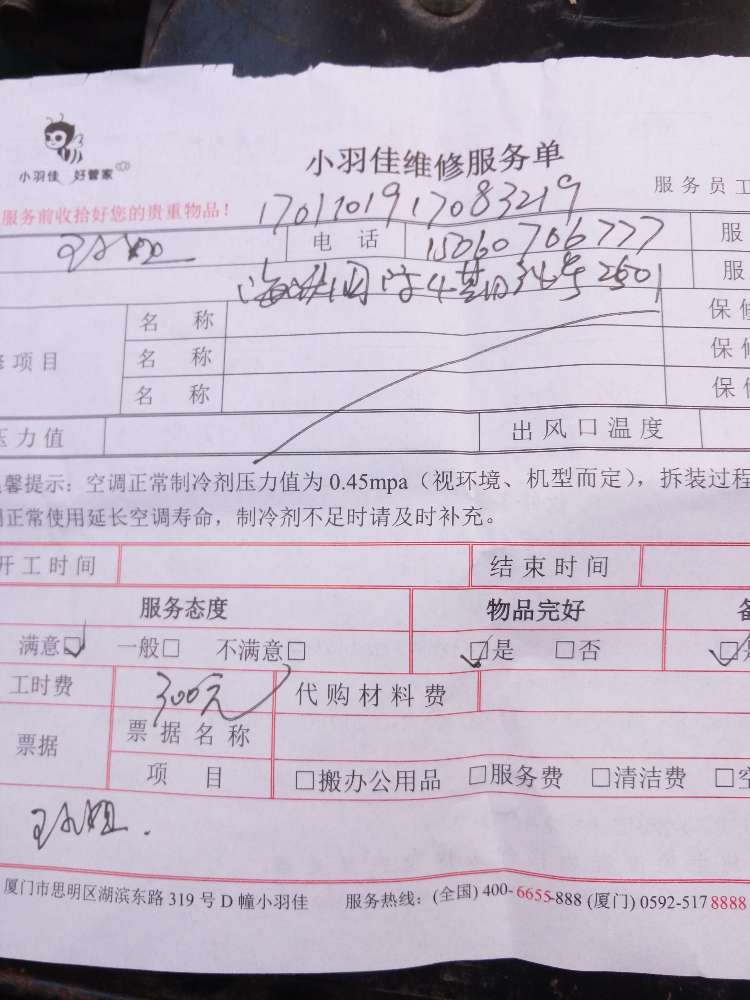 小羽佳 好管家
小羽佳维修服务单
服务员工
服务前收拾好您的贵重物品！
1701101917083219
电话 15060706777 服
34号2501 服
名称 保修
修项目 名称 保修
名称 保修
压力值 出风口温度
馨提示：空调正常制冷剂压力值为0.45mpa（视环境、机型而定），拆装过程
正常使用延长空调寿命，制冷剂不足时请及时补充。
开工时间 结束时间
服务态度 物品完好 备
满意☑ 一般□ 不满意□ ☑是 □否
工时费 300元 代购材料费
票据 票据名称
项目 □搬办公用品 □服务费 □清洁费 □空
厦门市思明区湖滨东路319号D幢小羽佳 服务热线：(全国) 400-6655-888 (厦门) 0592-5178888